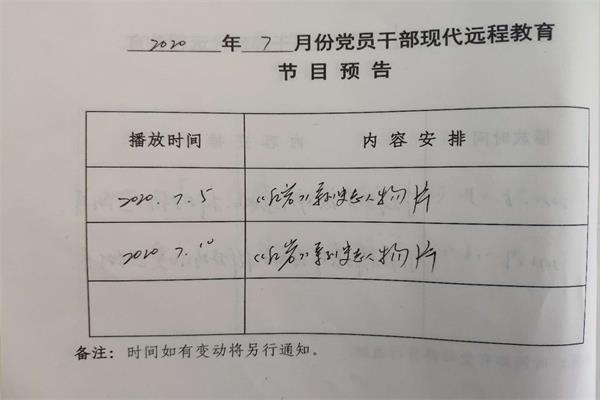 2020 年 7 月份党员干部现代远程教育
节目预告
播放时间 内容安排
2020.7.5 《红岩》系列党史人物片
2020 7.10 《红岩》系列党史人物片
备注:时间如有变动将另行通知。